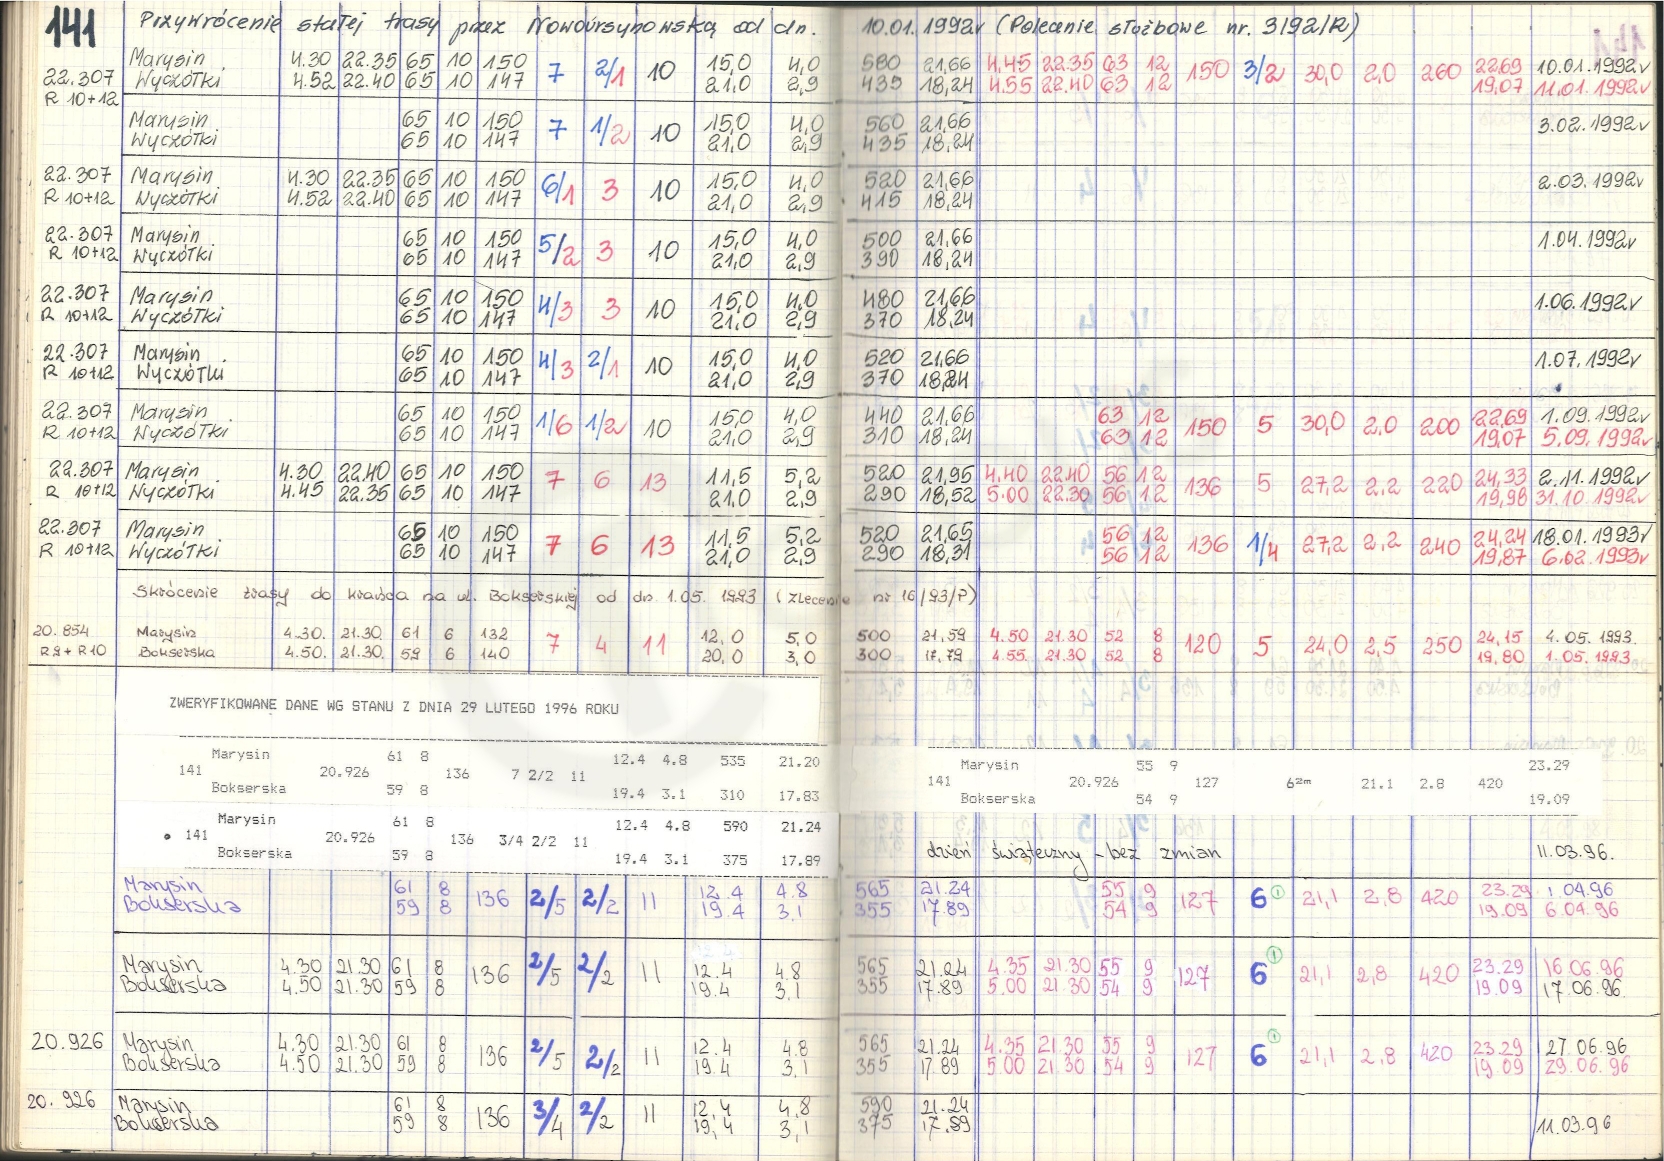 141 Przywrócenie stałej trasy przez Nowoursynowską od dn. 10.01.1992r (Polecenie służbowe nr. 3/92/R)
Marysin 4.30 22.35 65 10 150 7 2/1 10 15,0 4,0 580 21,66 4,45 22.35 63 12 150 3/2 30,0 2,0 260 22,69 10.01.1992r
22.307 Wyczółki 4.52 22.40 65 10 147 21,0 2,9 435 18,24 4.55 22.40 63 12 19,07 11.01.1992r
R 10+12
Marysin 65 10 150 7 1/2 10 15,0 4,0 560 21,66 3.02.1992r
Wyczółki 65 10 147 21,0 2,9 435 18,24
22.307 Marysin 4.30 22.35 65 10 150 6/1 3 10 15,0 4,0 520 21,66 2.03.1992r
R 10+12 Wyczółki 4.52 22.40 65 10 147 21,0 2,9 415 18,24
22.307 Marysin 65 10 150 5/2 3 10 15,0 4,0 500 21,66 1.04.1992r
R 10+12 Wyczółki 65 10 147 21,0 2,9 390 18,24
22.307 Marysin 65 10 150 4/3 3 10 15,0 4,0 480 21,66 1.06.1992r
R 10+12 Wyczółki 65 10 147 21,0 2,9 370 18,24
22.307 Marysin 65 10 150 4/3 2/1 10 15,0 4,0 520 21,66 1.07.1992r
R 10+12 Wyczółki 65 10 147 21,0 2,9 370 18,24
22.307 Marysin 65 10 150 1/6 1/2 10 15,0 4,0 440 21,66 63 12 150 5 30,0 2,0 200 22,69 1.09.1992r
R 10+12 Wyczółki 65 10 147 21,0 2,9 310 18,24 63 12 19,07 5.09.1992r
22.307 Marysin 4.30 22.40 65 10 150 7 6 13 11,5 5,2 520 21,95 4,40 22.40 56 12 136 5 27,2 2,2 220 24,33 2.11.1992r
R 10+12 Wyczółki 4.45 22.35 65 10 147 21,0 2,9 290 18,52 5.00 22.30 56 12 19,98 31.10.1992r
22.307 Marysin 65 10 150 7 6 13 11,5 5,2 520 21,65 56 12 136 1/4 27,2 2,2 240 24,24 18.01.1993r
R 10+12 Wyczółki 65 10 147 21,0 2,9 290 18,31 56 12 19,87 6.02.1993r
Skrócenie trasy do krańca na ul. Bokserskiej od dn. 1.05.1993 (zlecenie nr 16/93/P)
20.854 Marysin 4.30. 21.30. 61 6 132 7 4 11 12,0 5,0 500 21,59 4.50 21.30 52 8 120 5 24,0 2,5 250 24,15 4.05.1993.
R9+R10 Bokserska 4.50. 21.30. 59 6 140 20,0 3,0 300 17,79 4.55 21.30 52 8 19,80 1.05.1993.
ZWERYFIKOWANE DANE WG STANU Z DNIA 29 LUTEGO 1996 ROKU
Marysin 61 8 12.4 4.8 535 21.20 Marysin 55 9 23.29
141 20.926 136 7 2/2 11 141 20.926 127 6²ᵐ 21.1 2.8 420
Bokserska 59 8 19.4 3.1 310 17.83 Bokserska 54 9 19.09
Marysin 61 8 12.4 4.8 590 21.24
141 20.926 136 3/4 2/2 11
Bokserska 59 8 19.4 3.1 375 17.89 dzień świąteczny - bez zmian 11.03.96.
Marysin 61 8 136 2/5 2/2 11 12.4 4.8 565 21.24 55 9 127 6 ① 21,1 2,8 420 23.29 1 04.96
Bokserska 59 8 19.4 3,1 355 17.89 54 9 19.09 6.04.96
Marysin 4.30 21.30 61 8 136 2/5 2/2 11 12.4 4.8 565 21.24 4.35 21.30 55 9 127 6 ① 21,1 2,8 420 23.29 16.06.96
Bokserska 4.50 21.30 59 8 19.4 3.1 355 17.89 5.00 21.30 54 9 19.09 17.06.96.
20.926 Marysin 4.30 21.30 61 8 136 2/5 2/2 11 12.4 4.8 565 21.24 4.35 21.30 55 9 127 6 ① 21,1 2.8 420 23.29 27.06.96
Bokserska 4.50 21.30 59 8 19.4 3.1 355 17.89 5.00 21.30 54 9 19.09 29.06.96
20.926 Marysin 61 8 136 3/4 2/2 11 12,4 4,8 590 21.24
Bokserska 59 8 19,4 3,1 375 17.89 11.03.96